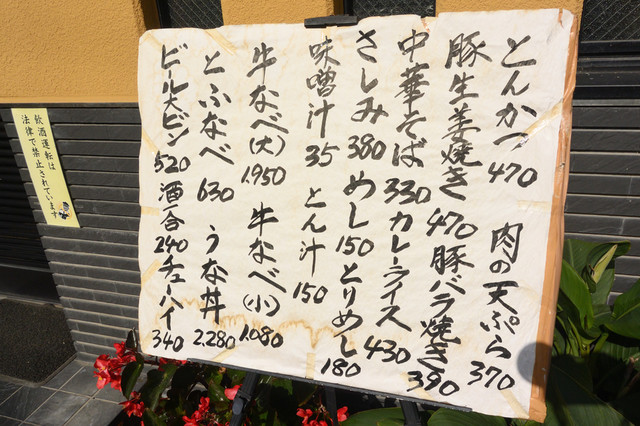 とんかつ 470 肉の天ぷら 370
豚生姜焼き 470 豚バラ焼き 390
中華そば 330 カレーライス 430
さしみ 380 めし 150 とりめし 180
味噌汁 35 とん汁 150
牛なべ(大) 1.950 牛なべ(小) 1.080
とふなべ 630 うな丼 2.280
ビール大ビン 520 酒一合 240 チューハイ 340
飲酒運転は
法律で禁止されています